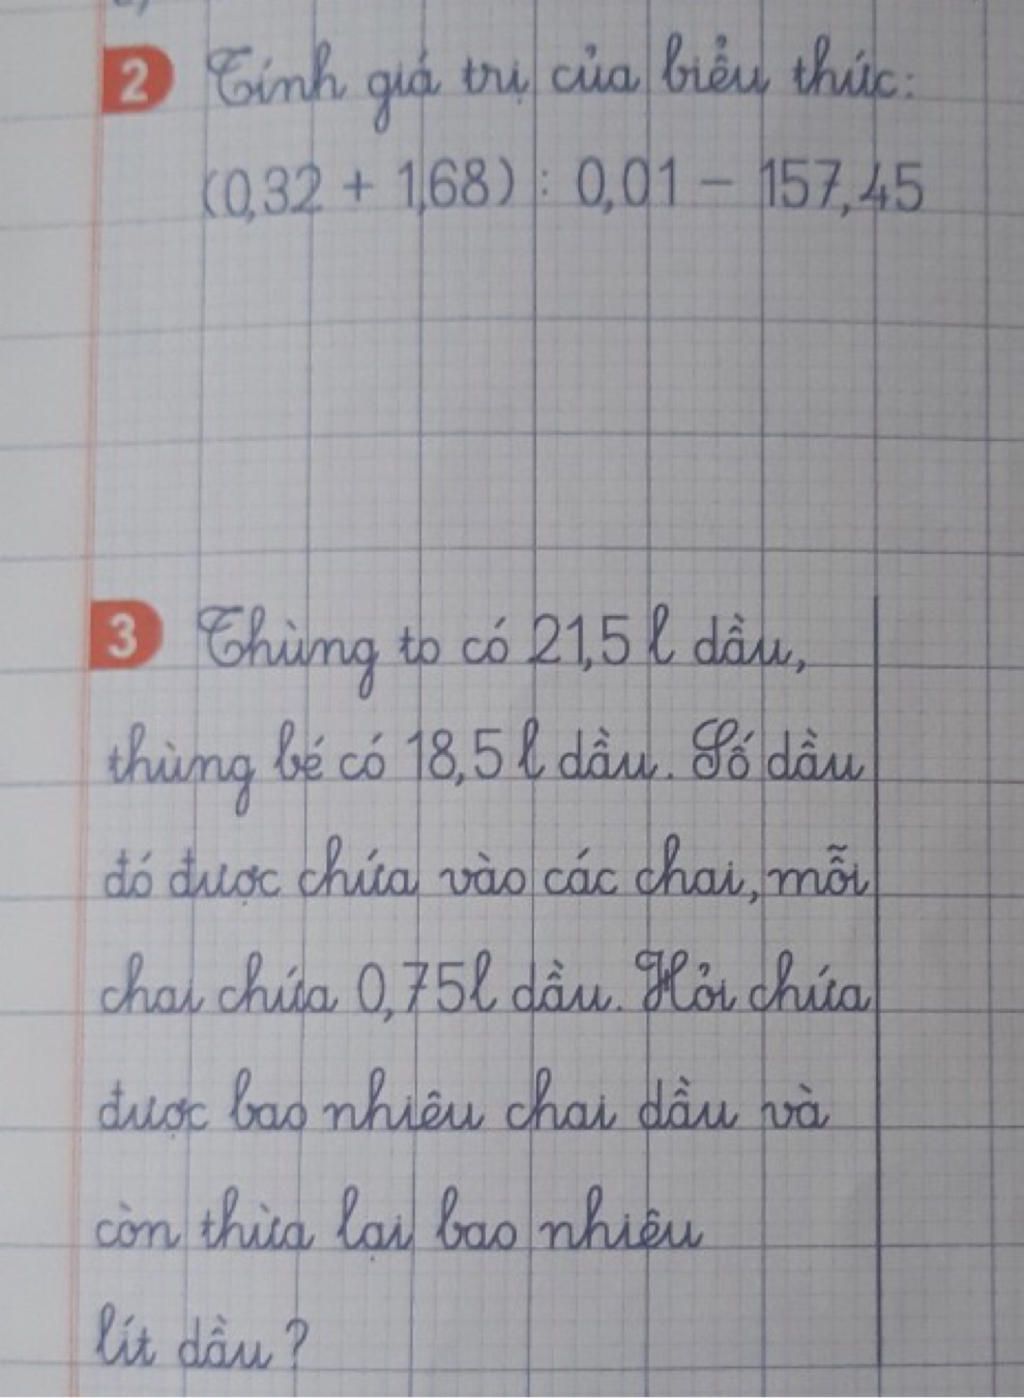 2 Tính giá trị của biểu thức:
(0,32 + 1,68) : 0,01 - 157,45
3 Thùng to có 21,5 l dầu,
thùng bé có 18,5 l dầu. Số dầu
đó được chứa vào các chai, mỗi
chai chứa 0,75l dầu. Hỏi chứa
được bao nhiêu chai dầu và
còn thừa lại bao nhiêu
lít dầu?